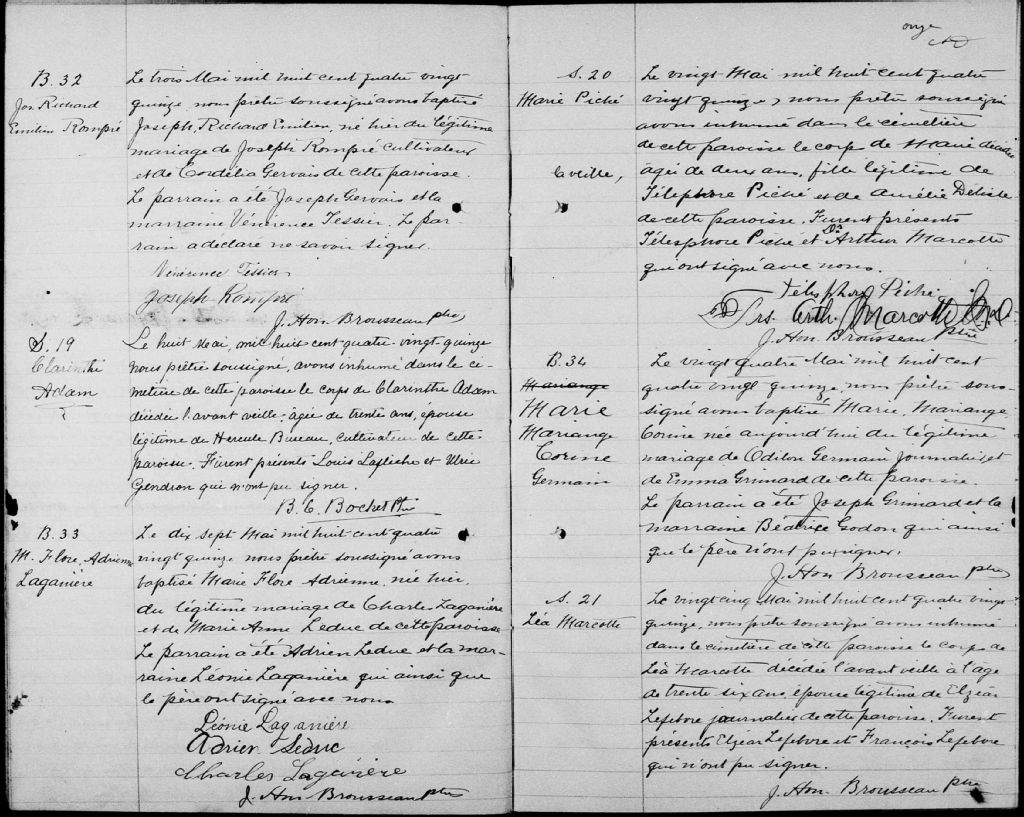 B. 32
Jos. Richard
Emilien Rompré
Le trois Mai mil huit cent quatre vingt
quinze, nous prêtre soussigné avons baptisé
Joseph, Richard Emilien, né hier du légitime
mariage de Joseph Rompré cultivateur
et de Cordélia Gervais de cette paroisse.
Le parrain a été Joseph Gervais et la
marraine Vénérence Tessier. Le par
rain a déclaré ne savoir signer.
Vénérence Tessier
Joseph Rompré
J. Hon. Brousseau Ptre
S. 19
Clarinthe
Adam
Le huit Mai, mil huit cent quatre-vingt-quinze
nous prêtre soussigné, avons inhumé dans le ci-
metière de cette paroisse le corps de Clarinthe Adam
décédée l'avant veille âgée de trente ans, épouse
légitime de Hercule Bureau, cultivateur de cette
paroisse. Furent présents Louis Laflèche et Ulric
Gendron qui n'ont pu signer.
B. C. Bochet Ptre
B. 33
M. Flore, Adrienne
Laganière
Le dix sept Mai mil huit cent quatre
vingt quinze nous prêtre soussigné avons
baptisé Marie Flore Adrienne, née hier,
du légitime mariage de Charles Laganière
et de Marie Anne Leduc de cette paroisse
Le parrain a été Adrien Leduc et la mar-
raine Léonie Laganière qui ainsi que
le père ont signé avec nous
Léonie Laganière
Adrien Leduc
Charles Laganière
J. Hon. Brousseau Ptre
onze
S. 20
Marie Piché
la veille,
Le vingt Mai mil huit cent quatre
vingt quinze, nous prêtre soussigné
avons inhumé dans le cimetière
de cette paroisse le corps de Marie décédée
âgée de deux ans, fille légitime de
Télesphore Piché et de Aurélie Delisle
de cette paroisse. Furent présents
Télesphore Piché et Dr Arthur Marcotte
qui ont signé avec nous.
Télesphore Piché
Arth. Marcotte
J. Hon. Brousseau Ptre
B. 34
Mariange
Marie
Mariange
Corine
Germain
Le vingt quatre Mai mil huit cent
quatre vingt quinze nous prêtre sous-
signé avons baptisé Marie, Mariange
Corine née aujourd'hui du légitime
mariage de Odilon Germain journalier et
de Emma Grimard de cette paroisse.
Le parrain a été Joseph Grimard et la
marraine Béatrice Godon qui ainsi
que le père n'ont pu signer.
J. Hon Brousseau Ptre
S. 21
Léa Marcotte
Le vingt cinq Mai mil huit cent quatre vingt
quinze, nous prêtre soussigné avons inhumé
dans le cimetière de cette paroisse le corps de
Léa Marcotte décédée l'avant veille à l'âge
de trente six ans, épouse légitime de Elzéar
Lefebvre journalier de cette paroisse. Furent
présents Elzéar Lefebvre et François Lefebvre
qui n'ont pu signer.
J. Hon. Brousseau Ptre